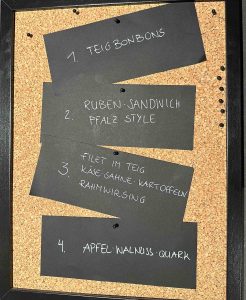 1. TEIGBONBONS
2. RUBEN-SANDWICH
PFALZ STYLE
3. FILET IM TEIG
KÄSE-SAHNE-KARTOFFELN
RAHMWIRSING
4. APFEL-WALNUSS-QUARK